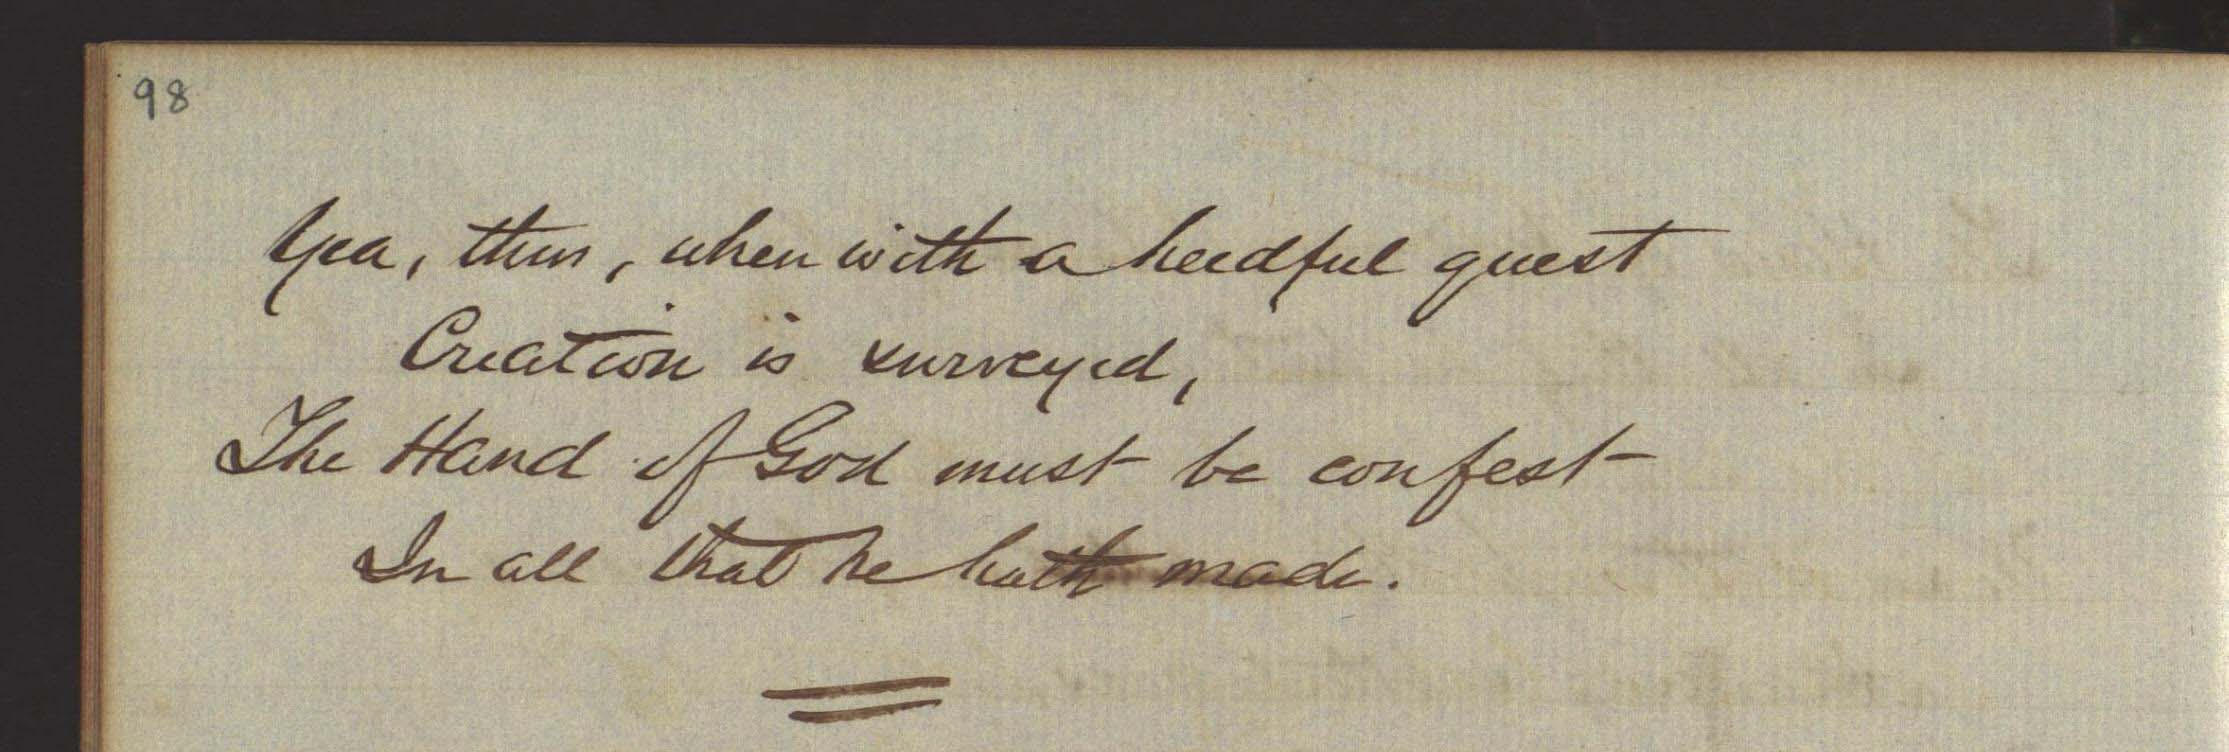 98
Yea, thus, when with a heedful quest
Creation is surveyed,
The Hand of God must be confest
In all that he hath made.